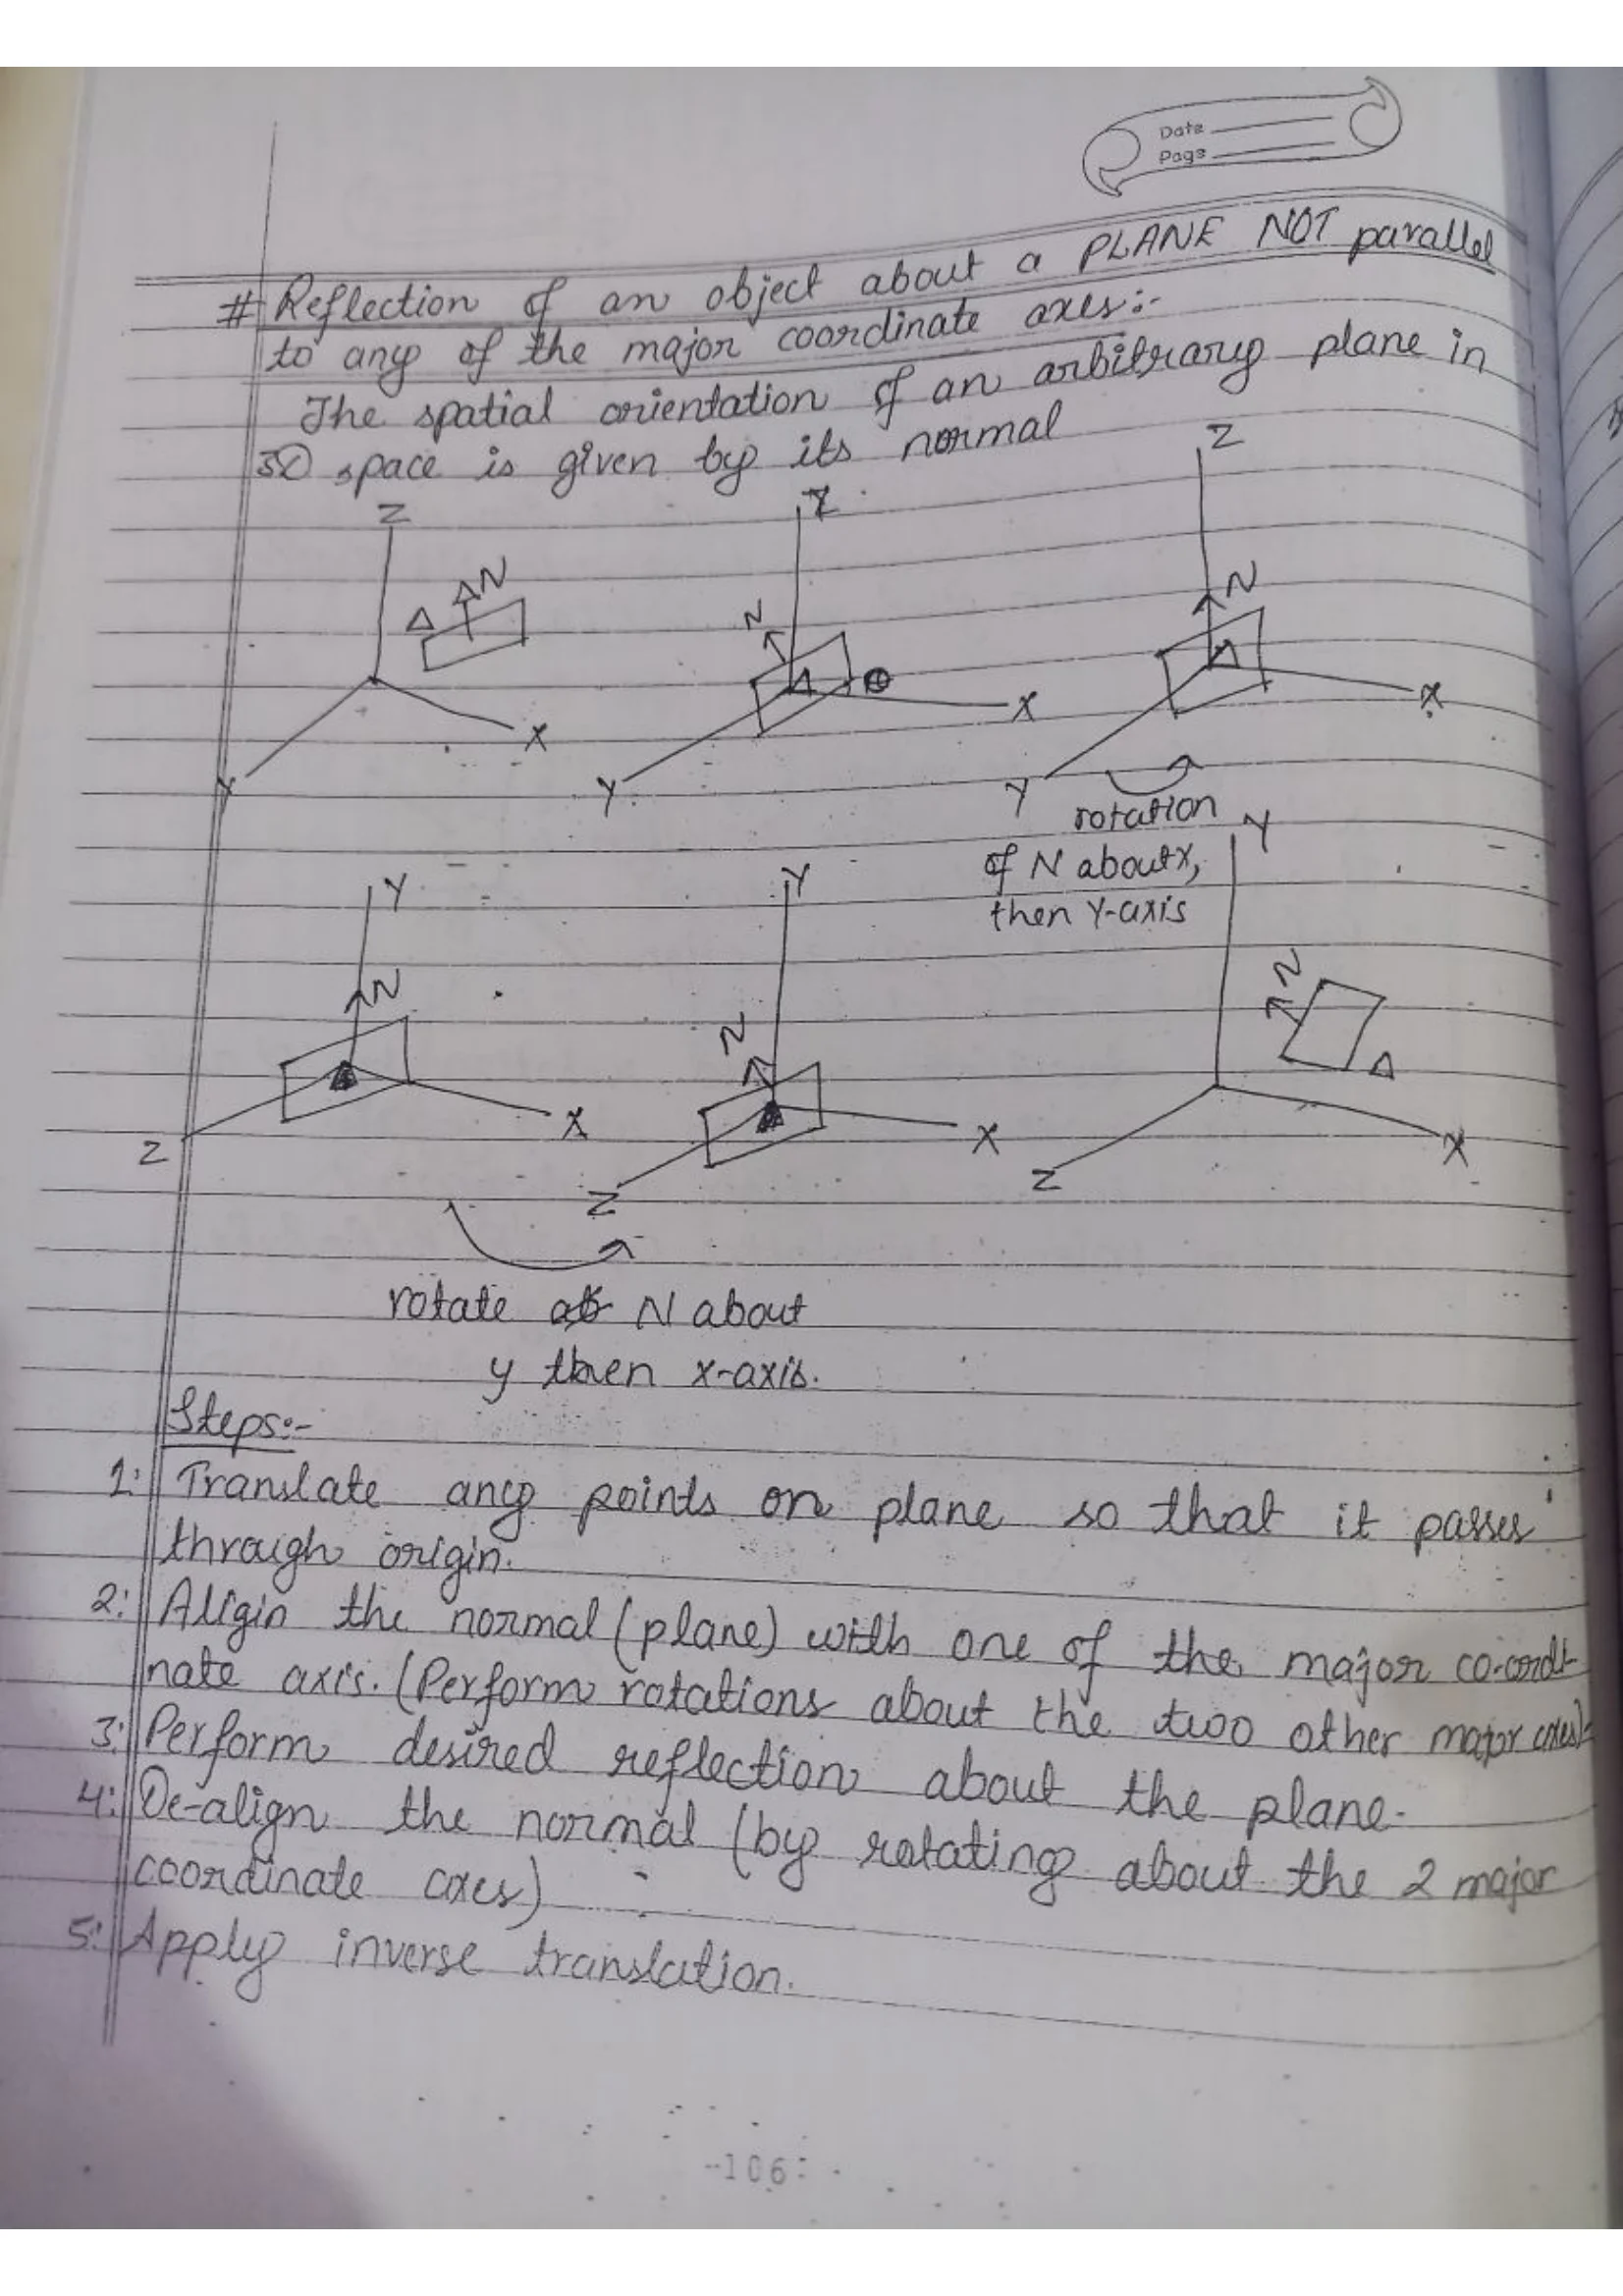 Date
Page
# Reflection of an object about a PLANE NOT parallel
to any of the major coordinate axes:-
The spatial orientation of an arbitrary plane in
3D space is given by its normal
Z
N
Y
X
Z
N
Y
X
Z
N
Y
X
rotation
of N about x,
then Y-axis
Y
N
Z
X
Y
N
Z
X
Y
N
Z
X
rotate N about
y then x-axis.
Steps:-
1: Translate any points on plane so that it passes
through origin.
2: Aligin the normal (plane) with one of the major co-ordi-
nate axis. (Perform rotations about the two other major axes)
3: Perform desired reflection about the plane.
4: De-align the normal (by rotating about the 2 major
coordinate axes)
5: Apply inverse translation.
-106-